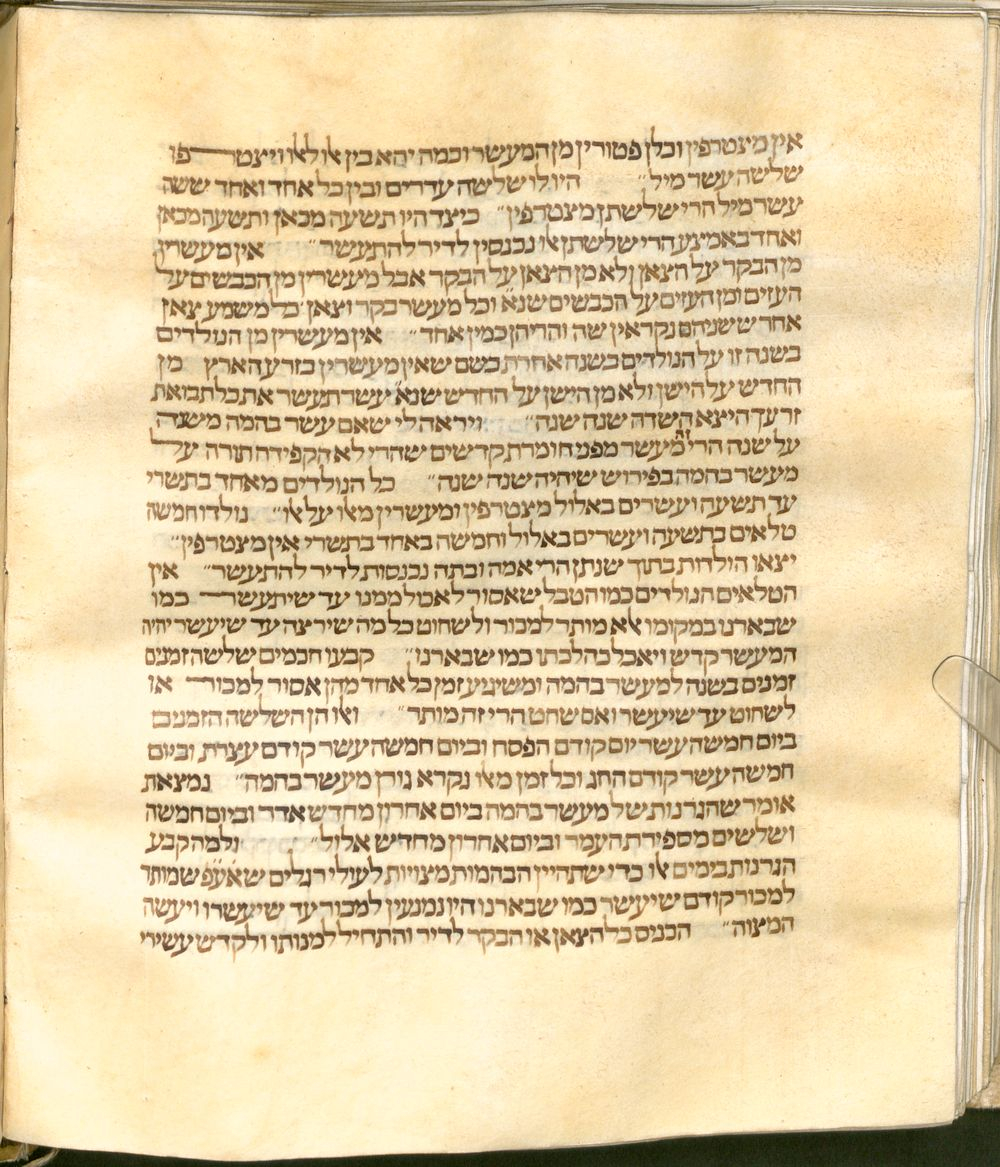 אין מצטרפין וכלן פטורין מן המעשר וכמה יהא בין אלו לאלו ויצטר פו
שלשה עשר מיל״ היו לו שלשה עדרים ובין כל אחד ואחד ששה
עשר מיל הרי שלשתן מצטרפין״ כיצד היו תשעה מכאן ותשעה מכאן
ואחד באמצע הרי שלשתן אלו נכנסין לדיר להתעשר״ אין מעשרין
מן הבקר על הצאן ולא מן הצאן על הבקר אבל מעשרין מן הכבשים על
העזים ומן העזים על הכבשים שנא׳ וכל מעשר בקר וצאן כל משמע צאן
אחד ששניהם נקראין שה והרי הן כמין אחד״ אין מעשרין מן הנולדים
בשנה זו על הנולדים בשנה אחרת כשם שאין מעשרין בזרע הארץ מן
החדש על הישן ולא מן הישן על החדש שנא׳ עשר תעשר את כל תבואת
זרעך היצא השדה שנה שנה״ ויראה לי שאם עשר בהמה משנה
על שנה הרי זה מעשר מפני חומרת קדשים שהרי לא הקפידה תורה על
מעשר בהמה בפירוש שיהיה שנה שנה״ כל הנולדים מאחד בתשרי
עד תשעה ועשרים באלול מצטרפין ומעשרין מאלו על אלו״ נולדו חמשה
טלאים בתשעה ועשרים באלול וחמשה באחד בתשרי אין מצטרפין״
יצאו הולדות בתוך שנתן הרי אמה ובתה נכנסות לדיר להתעשר״ אין
הטלאים הנולדים כמו הטבל שאסור לאכול ממנו עד שיתעשר כמו
שבארנו במקומו אלא מותר למכור ולשחוט כל מה שירצה עד שיעשר יהיה
המעשר קדש ויאכל כהלכתו כמו שבארנו״ קבעו חכמים שלשה זמנים
זמנים בשנה למעשר בהמה ומשיגיע זמן כל אחד מהן אסור למכור או
לשחוט עד שיעשר ואם שחט הרי זה מותר״ ואלו הן השלשה הזמנים
ביום חמשה עשר יום קודם הפסח וביום חמשה עשר קודם עצרת וביום
חמשה עשר קודם החג וכל זמן מאלו נקרא גורן מעשר בהמה״ נמצאת
אומר שהגרנות של מעשר בהמה ביום אחרון מחדש אדר וביום חמשה
ושלשים מספירת העמר וביום אחרון מחדש אלול״ ולמה קבע
הגרנות בימים אלו כדי שתהיין הבהמות מצויות לעולי רגלים שאע׳פ שמותר
למכור קודם שיעשר כמו שבארנו היו נמנעין למכור עד שיעשרו ויעשה
המצוה״ הכניס כל הצאן או הבקר לדיר והתחיל למנותו ולקדש עשירי